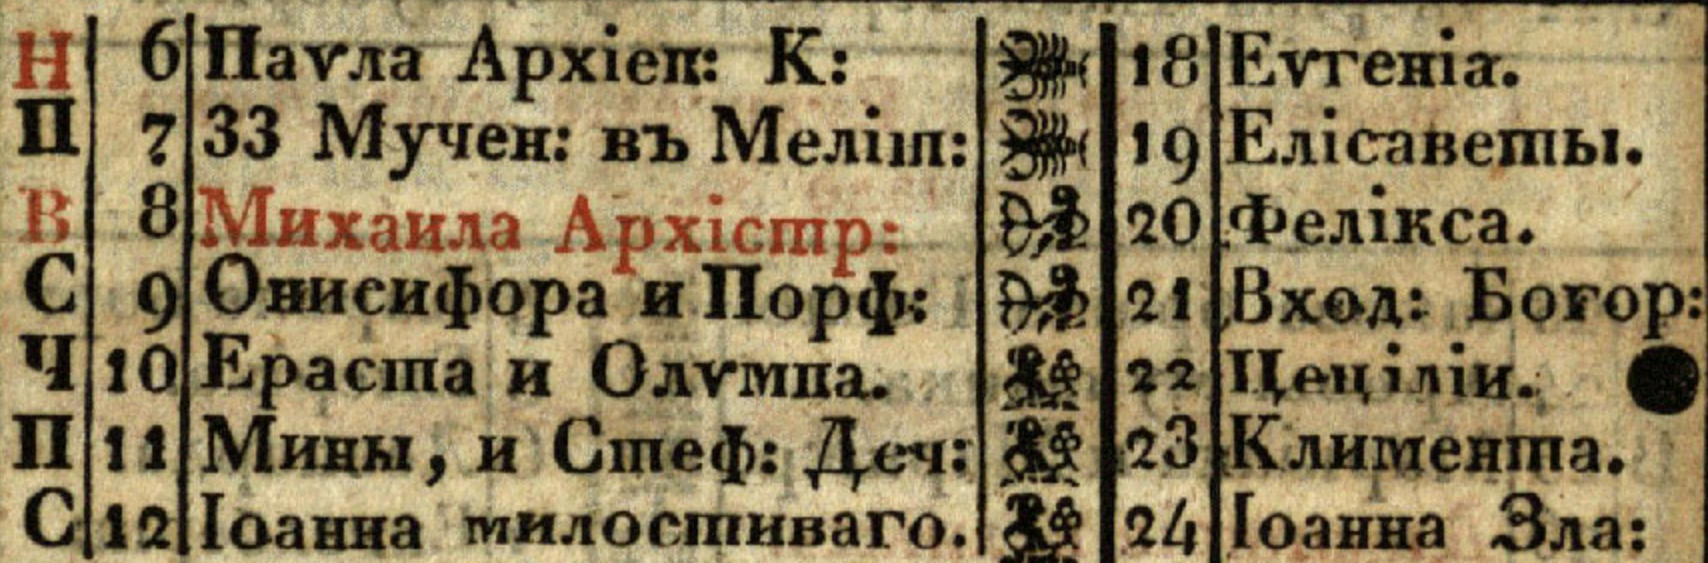 Н 6 Паѵла Архіеп: К: 18 Еѵгеніа.
П 7 33 Мучен: въ Меліт: 19 Елісаветы.
В 8 Михаила Архістр: 20 Фелікса.
С 9 Онисифора и Порф: 21 Вход: Богор:
Ч 10 Ераста и Олѵмпа. 22 Цеціліи.
П 11 Мины, и Стеф: Деч: 23 Климента.
С 12 Іоанна милостиваго. 24 Іоанна Зла: